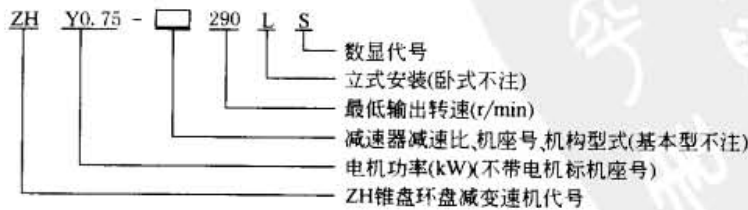 ZH Y0.75-□ 290 L S
数显代号
立式安装(卧式不注)
最低输出转速(r/min)
减速器减速比、机座号、机构型式(基本型不注)
电机功率(kW)(不带电机标机座号)
ZH锥盘环盘减变速机代号